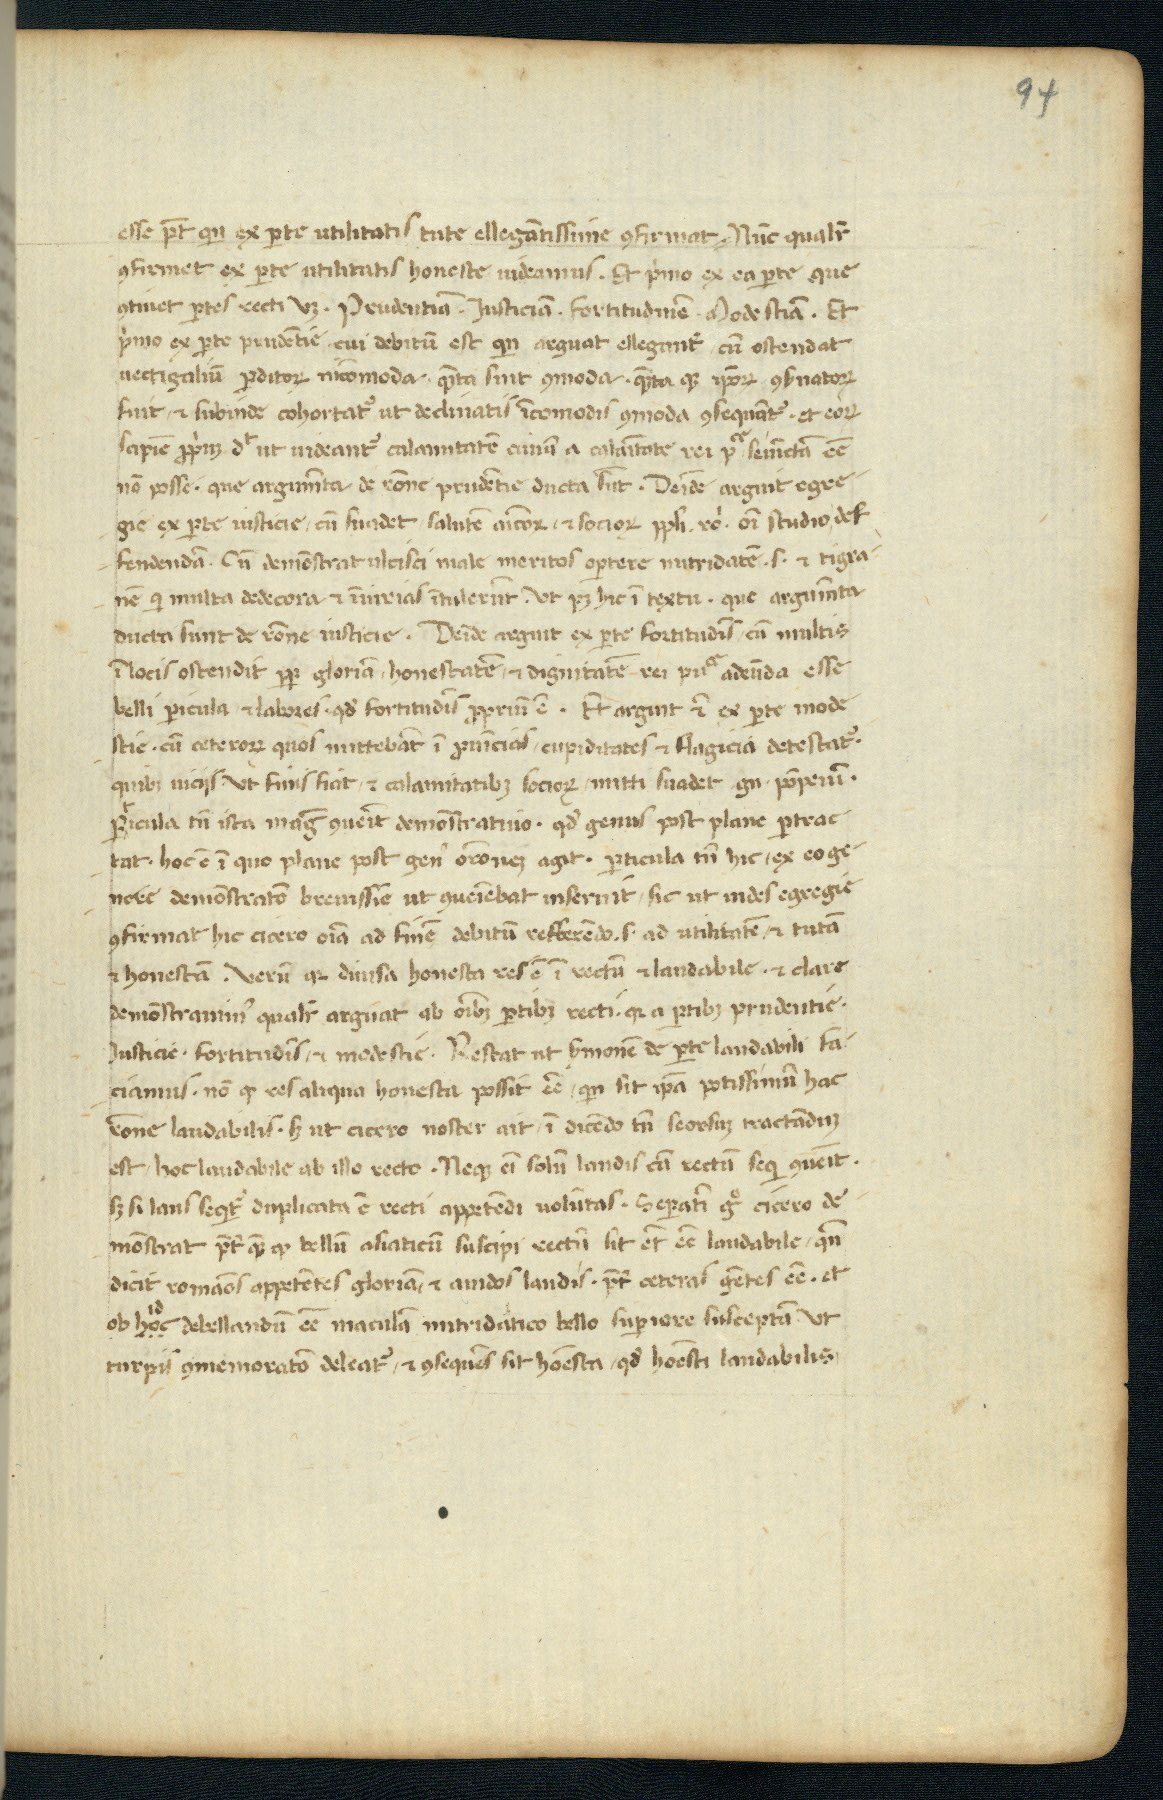 94
esse pt̄ qn̄ ex ꝑte utilitatis tute ellegātissime ꝯfirmat. Nūc qualr̄
ꝯfirmet ex ꝑte utilitatis honeste uideamus. Et p̓mo ex ea ꝑte que
ꝯtinet ꝑtes recti vꝫ. Prudentiā. Justiciā. fortitudinē. Modestiā. Et
p̓mo ex ꝑte prudētie cui debitū est arguat ellegant̓ cū ostendat
uectigaliū ꝑditoꝝ incōmoda. quāta sint ꝯmoda. quāta qꝫ ip̄oꝝ ꝯẜuatoꝝ
sint, ⁊ subinde cohortat̓ ut declinatis īcomodis ꝯmoda ꝯsequāt̓. et eoꝝ
ut uideant̓ calamitatē ciuiū a calamitate rei p̄ᵃ seiūctā eē
nō posse. que argumēta de rōne prudētie ducta sūt. Deinde arguit egre-
gie ex ꝑte iusticie, cū suadet salutē ⁊ socioꝝ oī studio def-
fendendā. Cū demōstrat ulcisci male meritos oportere mitridatē .s. ⁊ tigra-
nē qi multa dedecora ⁊ iniurias ītulerūt. Ut pꝫ hic ī textu. que argumēta
ducta sunt de rōne iusticie. Deīde arguit ex ꝑte fortitudīs, cū multis
ī locis ostendit gloriā, honestatē, ⁊ dignitatē rei pu͞ᵃ adeūda esse
belli ꝑicula, ⁊ labores. qd̓ fortitudīs ꝓpriū ē. Et arguit ex ꝑte mode-
stie. cū ceteroꝝ quos mittebāt ī prouīcias, cupiditates ⁊ flagicia detestat̓.
quibꝫ uicijs ut finis fiat, ⁊ calamitatibꝫ socioꝝ, mitti suadet gn̄. pōpeiū.
ꝑticula tn̄ ista mag̓ ꝯuēit demōstratiuo. qd̓ genus post plane ꝑtrac-
tat. hoc ē ī quo plane post gen̓ agit. ꝑticula tn̄ hic, ex eo ge-
nere demōstratō breuissīe ut ꝯueīebat inseruit, sic ut uides egregie
ꝯfirmat hic cicero oīa ad finē debitū refferēdo .s. ad utilitatē, ⁊ tutā
⁊ honestā. Verū qꝛ diuisa honesta res ē ī rectū ⁊ laudabile. ⁊ clare
demōstrauim̓ qualr̄ arguat ab oībꝫ ꝑtibꝫ recti. qꝛ a ꝑtibꝫ prudentie.
Justicie. fortitudīs, ⁊ modestie. Restat ut ẜmonē de ꝑte laudabili fa-
ciamus. nō qꝫ res aliqua honesta possit eē, qn̄ sit ip̄a potissimū hac
rōne laudabilis. sꝫ ut cicero noster ait, ī dicēdo tn̄ seorsuꝫ tractāduꝫ
est, hoc laudabile ab illo recto. Neqꝫ eī solū laudis cā rectū seq̓ ꝯuēit.
sꝫ si laus seqt̓ duplicata ē recti appetēdi uolūtas. Seꝑatī gͦ cicero de-
mōstrat bellū asiaticū suscipi rectū sit et̄ eē laudabile, qn̄
dicit romaōs appetētes gloriā, ⁊ auidos laudis. pt̄ ceteras gētes eē. et
ob hoc id debellandū eē maculā mitridatico bello suꝑiore susceptā ut
turpis ꝯmemoratō deleat̓, ⁊ ꝯsequēs sit hoēsta, qd̓ hoēsti laudabilis